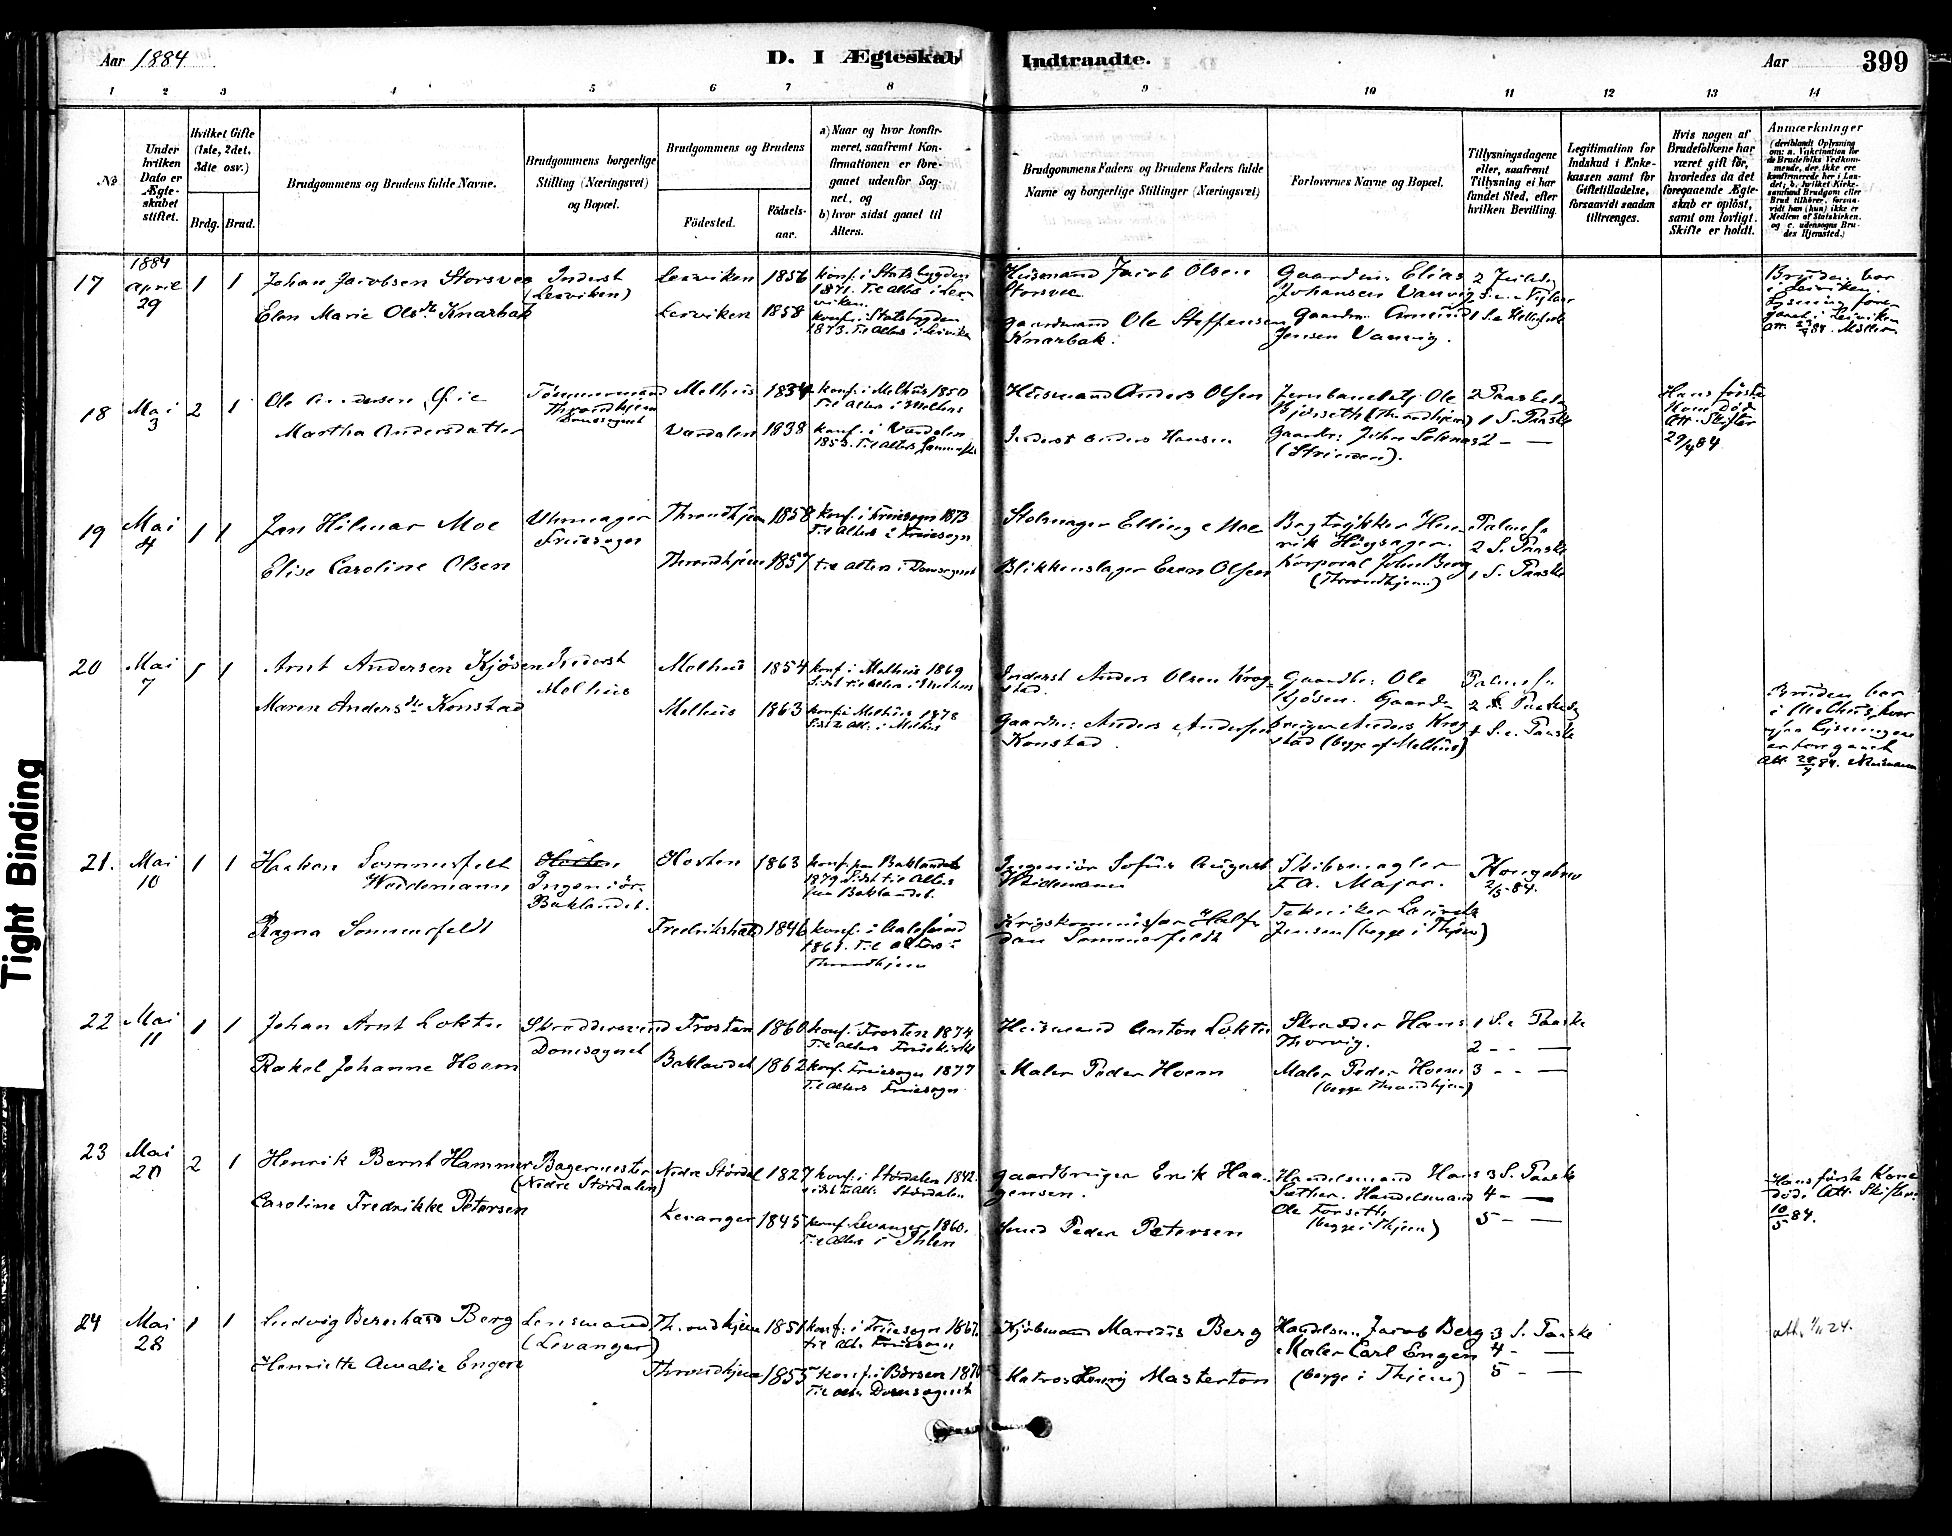 Aar 1884
D. I Ægteskab
Indtraadte.
Aar
399
1 2 3 4 5 6 7 8 9 10 11 12 13 14
No
Under hvilken Dato er Ægteskabet stiftet.
Hvilket Gifte (1ste, 2det, 3die osv.)
Brdg. Brud.
Brudgommens og Brudens fulde Navne.
Brudgommens borgerlige Stilling (Næringsvei) og Bopæl.
Brudgommens og Brudens
Födested.
Födselsaar.
a) Naar og hvor konfirmeret, saafremt Konfirmationen er foregaaet udenfor Sognet, og
b) hvor sidst gaaet til Alters.
Brudgommens Faders og Brudens Faders fulde Navne og borgerlige Stillinger (Næringsvei)
Forlovernes Navne og Bopæl.
Tillysningsdagene eller, saafremt Tillysning ei har fundet Sted, efter hvilken Bevilling.
Legitimation for Indskud i Enkekassen samt for Giftetilladelse, forsaavidt saadan tiltrænges.
Hvis nogen af Brudefolkene har været gift för, hvorledes da det foregaaende Ægteskab er oplöst, samt om lovligt Skifte er holdt.
Anmærkninger
17
1884
April
29
1 1
Johan Jacobsen Storsvee
Elen Marie Olsdr Knarbak
Inderst
(Lexviken)
Lexviken 1856
Lexviken 1858
konf. i Stadsbygden
1871. Til Alters i Lex-
viken.
konf. i Stadsbygden
1873. Til Alters i Lexviken
Husmand Jacob Olsen
Storsvee
Gaardmand Ole Steffensen
Knarbak.
Gaardm. Elias
Johansen Vanvig
Gaardm. Amund
Jensen Vanvig.
Bruden bor
i Lexviken.
Lysning fore-
gaaet i Lexviken
18
Mai
3
2 1
Ole Andersen Øie
Martha Andersdatter
Tömmermand
Throndhjem
Domsognet
Melhus 1834
Værdalen 1838
konf. i Melhus 1850
Til Alters i Melhus
konf. i Værdalen
1853. Til Alters
Husmand Anders Olsen
Inderst Anders Hansen
(Strinden).
1 S. Paaske
2 - —
Hans første
Kone död
Att. Skifter
29/4 84
19
Mai
4
1 1
Jon Hilmar Moe
Elise Caroline Olsen
Uhrmager
Fruesogn
Throndhjem 1858
Throndhjem 1857
konf. i Fruesogn 1873
Til Alters i Fruesogn
til Alters i Domsognet
Stolmager Elling Moe
Blikkenslager Even Olsen
Bogtrykker Hen-
rik Högsager.
Korporal John Berg
(Throndhjem)
Palmes.
2 S. Paaske
1 S. Paaske
20
Mai
7
1 1
Arnt Andersen Kjösen
Maren Andersdr Konstad
Inderst
Melhus
Melhus 1854
Melhus 1863
konf. i Melhus 1869
Sidst til Alters i Melhus
konf. i Melhus 1878
Sidst Alt. i Melhus
Inderst Anders Olsen Krog-
stad.
Gaardm: Anders Andersen
Konstad.
Gaardbr. Ole
Kjösen. Gaard-
bruger Anders Krog-
stad (begge af Melhus)
Palmes.
2 S. Paaske
Bruden bor
i Melhus, hvor
ogsaa Lysningen
er foregaaet
21.
Mai
10
1 1
Haakon Sommerfelt
Weddemann
Ragna Sommerfeldt
Ingeniör.
Baklandet.
Horten 1863
Fredrikshald 1846
konf. paa Baklandet
1879. Sidst til Alters
paa Baklandet.
konf. i Aalesund
1861. Til Alters i
Throndhjem
Ingeniör Sofus August
Krigskommissær Half-
dan Sommerfeldt
Skibsmægler
F. A. Majer.
Tekniker Lauritz
Jensen (begge i Thjem)
Kongebrev
2/5-84.
22
Mai
11
1 1
Johan Arnt Loktu
Rakel Johanne Hoem
Skræddersvend
Domsognet
Frosten 1860
Baklandet 1862
konf. Frosten 1874
Til Alters Fruekirke
konf. Fruesogn 1877
Til Alters Fruesogn
Husmand Anton Loktu
Maler Peder Hoem
Skrædder Hans
Thorvig.
Maler Peder Hoem
(begge Throndhjem)
1 S. e Paaske
2 - - —
3 - - —
23
Mai
20
2 1
Henrik Bernt Hammer
Caroline Fredrikke Petersen
Bagermester
(Nedre Stördalen)
Nedre Stördal 1827
Levanger 1845
konf. i Stördalen 1842.
sidst til Alt. Stördalen
konf. Levanger 1860.
Til Alters i Ihlen
Gaardbruger Erik Haa-
gensen.
Smed Peder Petersen
Handelsmand Hans
Sæther. Handelsmand
Ole Forseth
(begge i Thjem)
3 S. Paaske
4 - —
5 - —
Hans første Kone
död. Att. Skifter
10/5 84.
24
Mai
28
1 1
Ludvig Bernhard Berg
Henriette Amalie Engen
Lensmand
(Levanger)
Throndhjem 1851
Throndhjem 1855
konf. i Fruesogn 1867.
til Alt. Fruesogn
konf. i Börsen 1870
Til Alter Domsognet
Kjöbmand Marius Berg
Matros Henrij Masterton
Handelsm. Jacob Berg
Maler Carl Engen
(begge i Thjem)
3 S. Paaske
4 - —
5 - —
Tight Binding